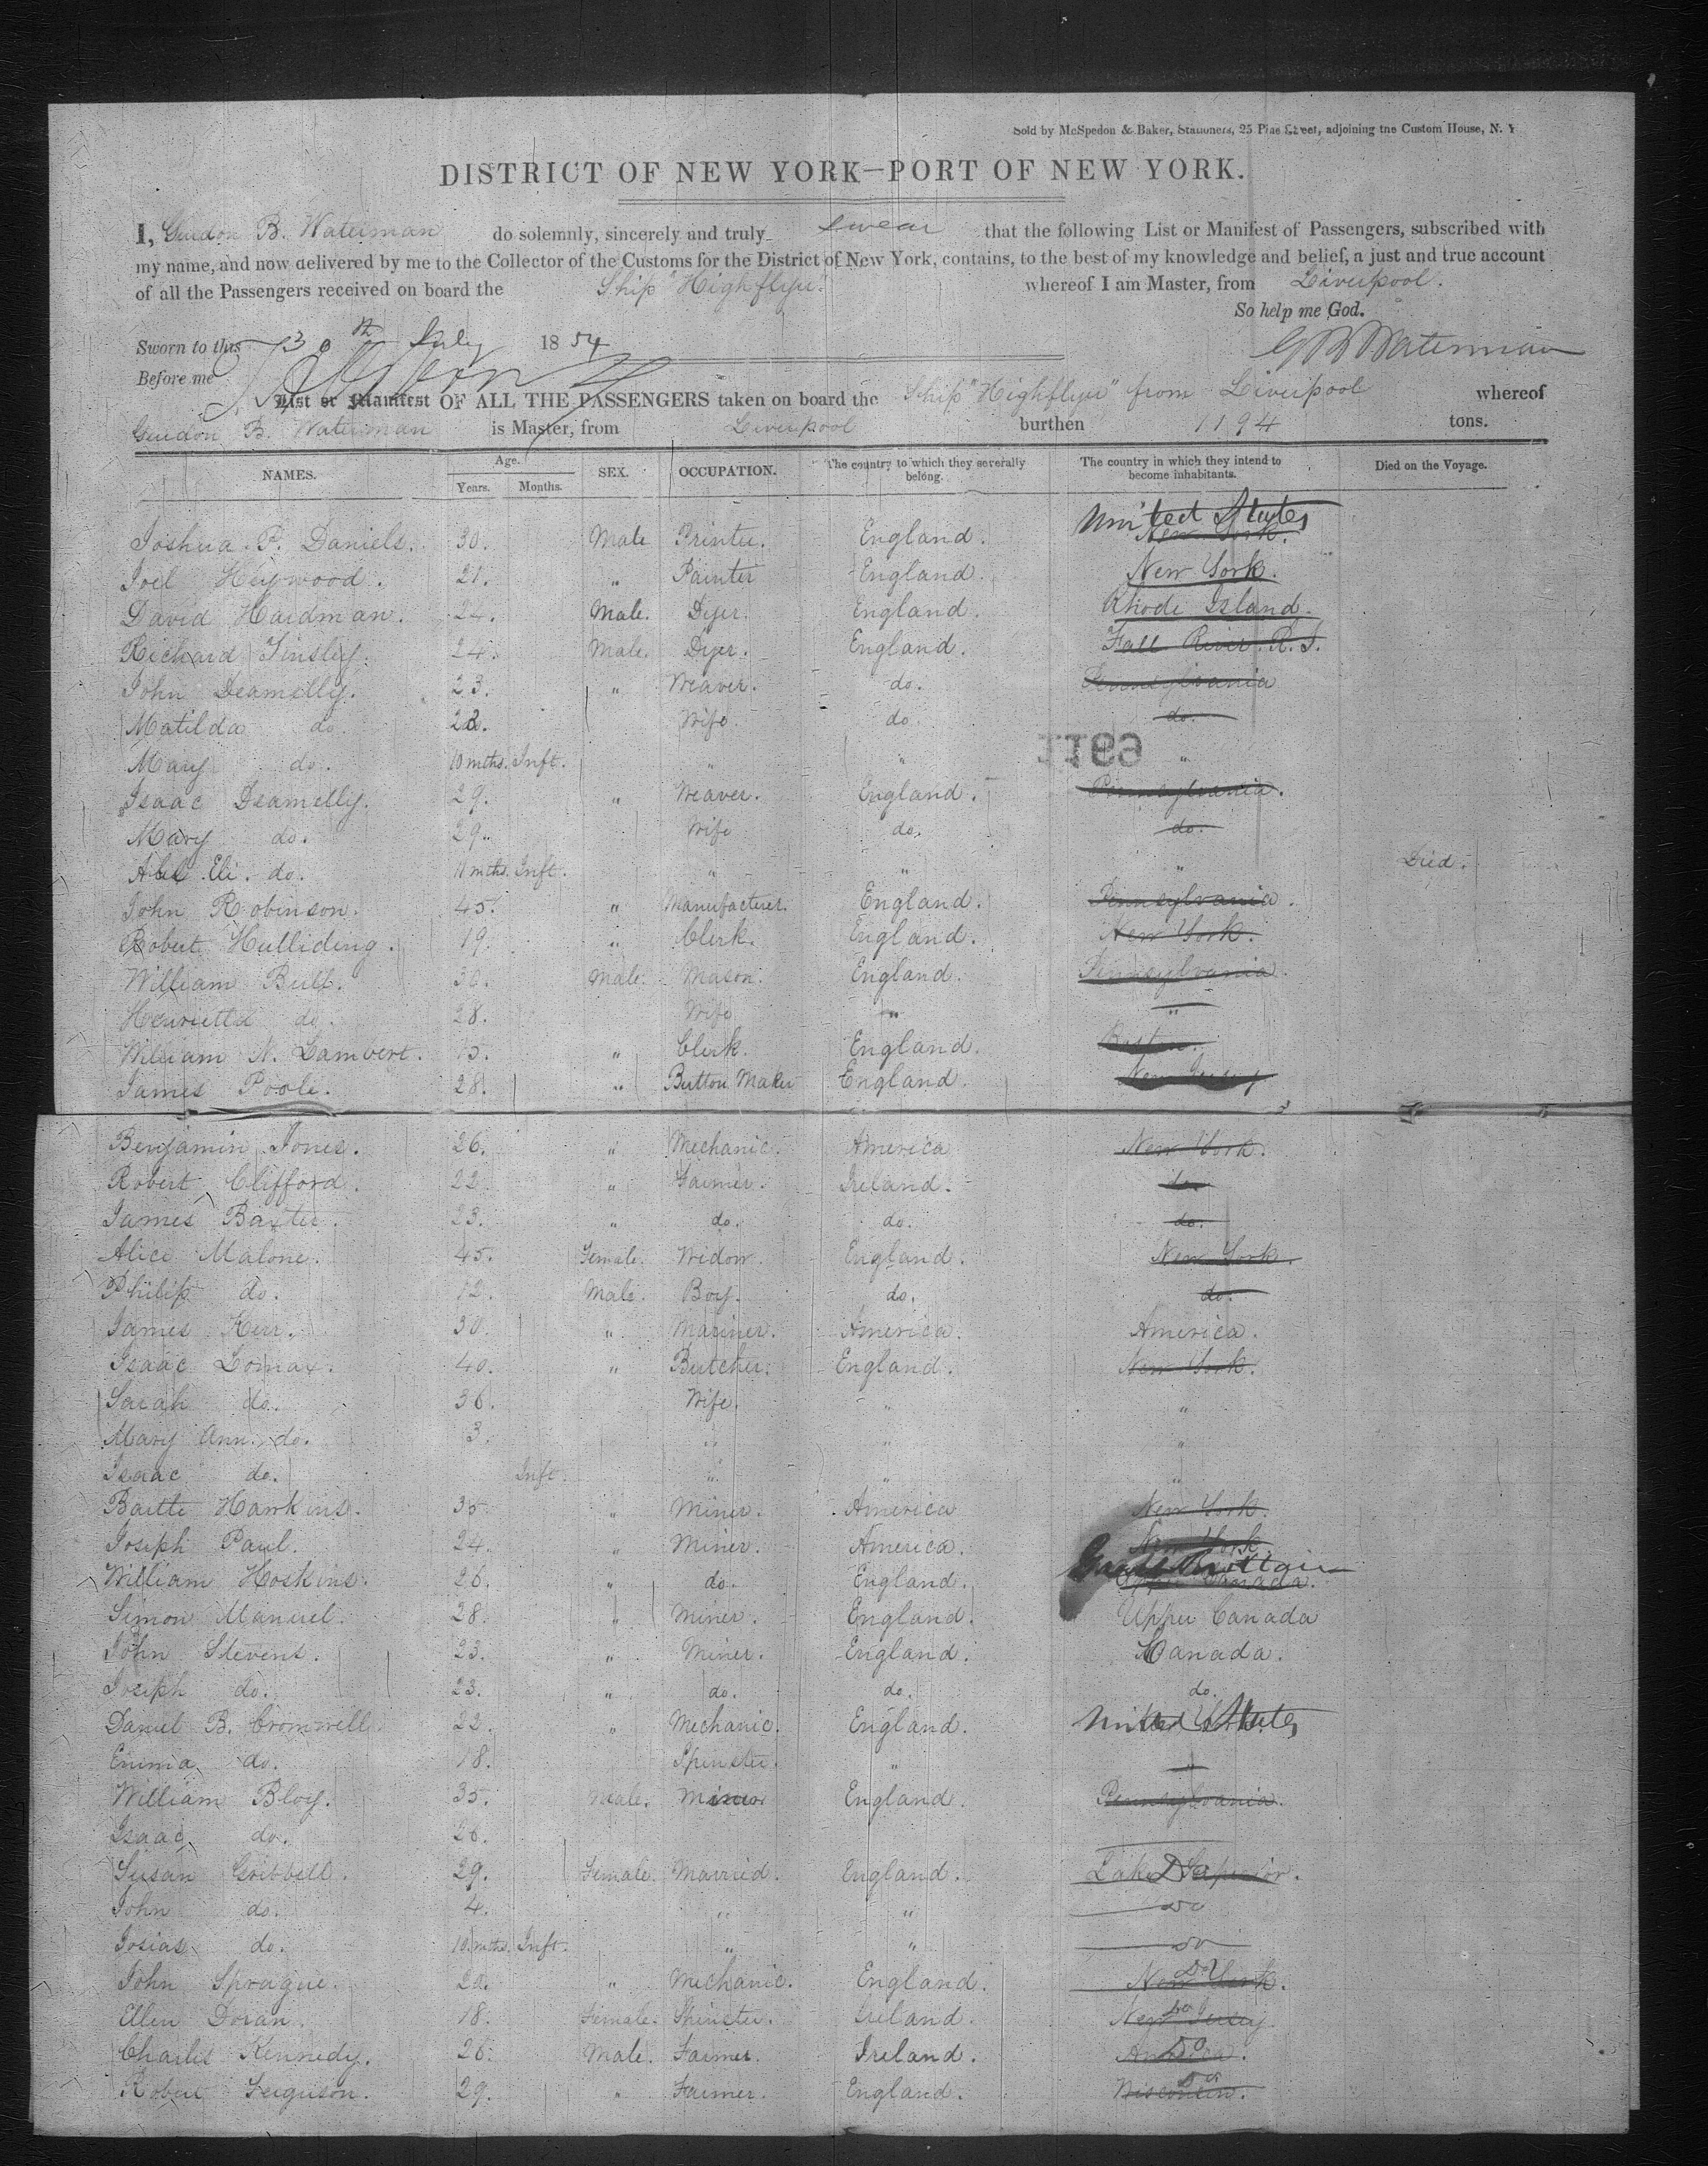 Sold by McSpedon & Baker, Stationers, 25 Pine Street, adjoining the Custom House, N. Y
DISTRICT OF NEW YORK—PORT OF NEW YORK.
I, Guedon B. Waterman do solemnly, sincerely and truly swear that the following List or Manifest of Passengers, subscribed with
my name, and now delivered by me to the Collector of the Customs for the District of New York, contains, to the best of my knowledge and belief, a just and true account
of all the Passengers received on board the Ship "Highflyer" whereof I am Master, from Liverpool.
So help me God.
Sworn to this 30th July 1854 G B Waterman
Before me
List or Manifest OF ALL THE PASSENGERS taken on board the Ship "Highflyer" from Liverpool whereof
Guedon B. Waterman is Master, from Liverpool burthen 1194 tons.
NAMES. Age. Years. Months. SEX. OCCUPATION. The country to which they severally belong. The country in which they intend to become inhabitants. Died on the Voyage.
United States
Joshua P. Daniels. 30. Male Printer. England. New York.
Joel Heywood. 21. " Painter England. New York.
David Hardman. 24. Male. Dyer. England. Rhode Island.
Richard Tinsley. 24. Male. Dyer. England. Fall River. R.I.
John Deamelly. 23. " Weaver. do. Pennsylvania
Matilda do. 22. Wife. do. do.
Mary do. 10 mths. Inft. " " "
Isaac Deamelly. 29. " Weaver. England. Pennsylvania.
Mary do. 29. Wife do. do.
Abel Eli. do. 11 mths. Inft. " " " Died.
John Robinson. 45. " Manufacturer. England. Pennsylvania.
Robert Hulliding. 19. " Clerk. England. New York.
William Bull. 30. Male. Mason. England. Pennsylvania.
Henrietta do. 28. Wife " "
William N. Lambert. 15. " Clerk. England. Boston.
James Poole. 28. " Button Maker England. New Jersey
Benjamin Jones. 26. " Mechanic. America New York.
Robert Clifford. 22. " Farmer. Ireland. do.
James Baxter. 23. " do. do. do.
Alice Malone. 45. Female. Widow. England. New York.
Philip do. 12. Male. Boy. do. do.
James Kerr. 30. " Mariner. America. America.
Isaac Lomax. 40. " Butcher. England. New York.
Sarah do. 36. Wife. " "
Mary Ann. do. 3. " " "
Isaac do. Inft. " " "
Bartle Hawkins. 35 " Miner. America New York.
Joseph Paul. 24. " Miner. America. New York
Great Brittain
William Hoskins. 26. " do. England. Upper Canada.
Simon Manuel. 28. " Miner. England. Upper Canada
John Stevens. 23. " Miner. England. Canada.
Joseph do. 23. " do. do. do.
Daniel B. Cromwell 22. " Mechanic. England. United States
Emma do. 18. Spinster. " "
William Bloy. 35. Male. Minor England. Pennsylvania.
Isaac do. 26.
Susan Gribbell. 29. Female. Married. England. Lake Superior. Do
John do. 4. " " Do
Josias do. 10 mths. Inft. " " Do
John Sprague. 20. " Mechanic. England. New York. Do
Ellen Doran. 18. Female. Spinster. Ireland. New Jersey. Do
Charles Kennedy. 26. Male. Farmer. Ireland. America. Do
Robert Ferguson. 29. " Farmer. England. Wisconsin. Do